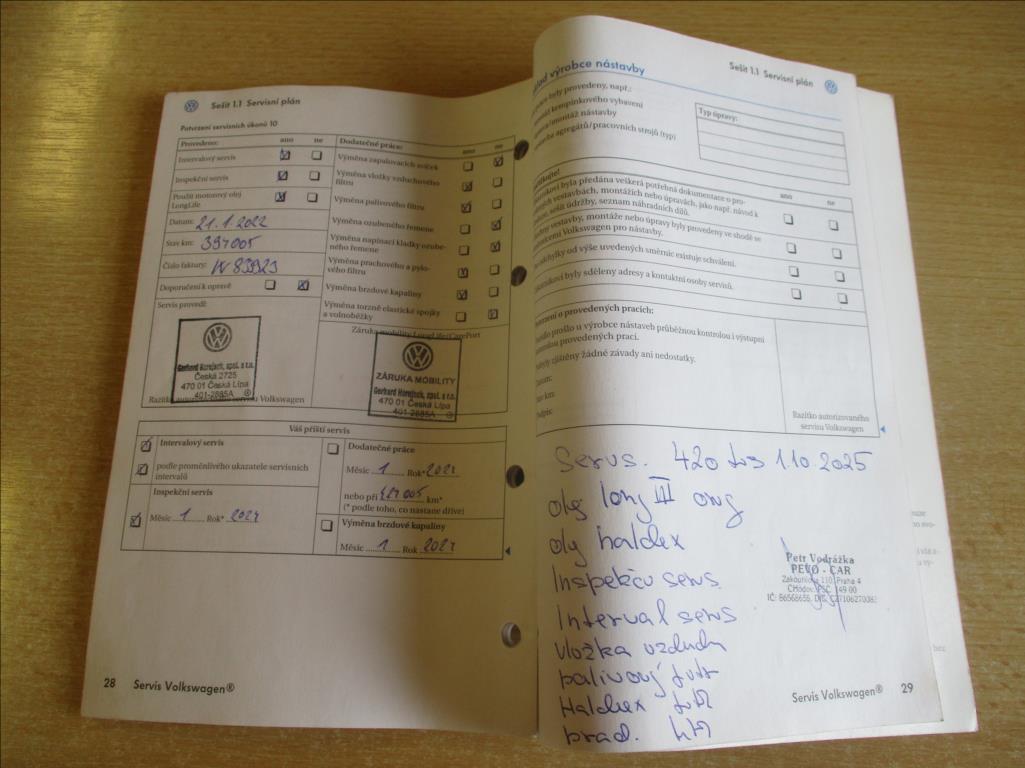 Sešit 1.1 Servisní plán
Potvrzení servisních úkonů 10
Provedeno: ano ne
Intervalový servis
Inspekční servis
Použit motorový olej
LongLife
Datum: 21.1.2022
Stav km: 394005
Číslo faktury: W83923
Doporučení k opravě
Servis provedl:
Gerhard Horejsch, spol. s r.o.
Česká 2725
470 01 Česká Lípa
401-2885A
Razítko servisu Volkswagen
Dodatečné práce: ano ne
Výměna zapalovacích svíček
Výměna vložky vzduchového
filtru
Výměna palivového filtru
Výměna ozubeného řemene
Výměna napínací kladky ozube-
ného řemene
Výměna prachového a pylo-
vého filtru
Výměna brzdové kapaliny
Výměna torzně elastické spojky
a volnoběžky
Záruka mobility LongLife/CarePort
ZÁRUKA MOBILITY
Gerhard Horejsch, spol. s r.o.
470 01 Česká Lípa
401-2885A
Váš příští servis
Intervalový servis
podle proměnlivého ukazatele servisních
intervalů
Inspekční servis
Měsíc 1 Rok* 2024
Dodatečné práce
Měsíc 1 Rok* 2024
nebo při 424005 km*
(* podle toho, co nastane dříve)
Výměna brzdové kapaliny
Měsíc 1 Rok 2024
28 Servis Volkswagen®
Sešit 1.1 Servisní plán
výrobce nástavby
byly provedeny, např.:
kempinkového vybavení
montáž nástavby
agregátů/pracovních strojů (typ)
Typ úpravy:
ano ne
byla předána veškerá potřebná dokumentace o pro-
vedených nástavbách, montážích nebo úpravách, jako např. návod k
sešit údržby, seznam náhradních dílů.
nástavby, montáže nebo úpravy byly provedeny ve shodě se
Volkswagen pro nástavby.
odchylky od výše uvedených směrnic existuje schválení.
byly sděleny adresy a kontaktní osoby servisů.
o provedených pracích:
prošlo u výrobce nástaveb průběžnou kontrolou i výstupní
provedených prací.
zjištěny žádné závady ani nedostatky.
Datum:
km:
Razítko autorizovaného
servisu Volkswagen
Servis. 420 tis 1.10.2025
olej long III
olej haldex
Inspekční servis
Interval servis
vložka vzduchu
palivový filtr
Haldex filtr
Petr Vodrážka
PEVO - CAR
Zakouřilova 110, Praha 4
CHodov, PSČ 149 00
Servis Volkswagen® 29